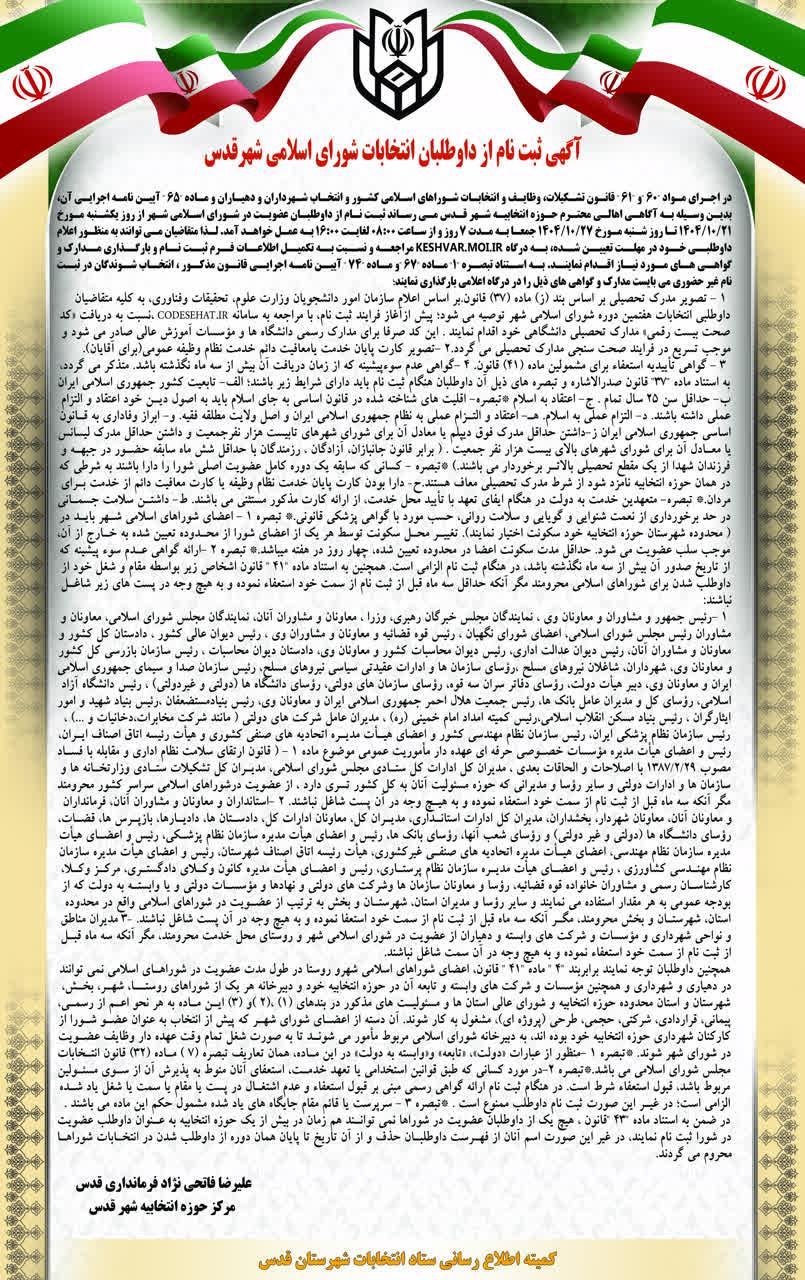 آگهی ثبت نام از داوطلبان انتخابات شورای اسلامی شهرقدس
در اجرای مواد -۶۰ و -۶۱- قانون تشکیلات، وظایف و انتخابات شوراهای اسلامی کشور و انتخاب شهرداران و دهیاران و ماده -۶۵- آیین نامه اجرایی آن،
بدین وسیله به آگاهی اهالی محترم حوزه انتخابیه شهر قدس می رساند ثبت نام از داوطلبان عضویت در شورای اسلامی شهر از روز یکشنبه مورخ
۱۴۰۴/۱۰/۲۱ تا روز شنبه مورخ ۱۴۰۴/۱۰/۲۷ جمعا به مدت ۷ روز و از ساعت ۰۸:۰۰ لغایت ۱۶:۰۰ به عمل خواهد آمد. لذا متقاضیان می توانند به منظور اعلام
داوطلبی خود در مهلت تعیین شده، به درگاه KESHVAR.MOI.IR مراجعه و نسبت به تکمیل اطلاعات فرم ثبت نام و بارگذاری مدارک و
گواهی های مورد نیاز اقدام نمایند. به استناد تبصره -۱- ماده -۶۷- و ماده -۷۴- آیین نامه اجرایی قانون مذکور ، انتخاب شوندگان در ثبت
نام غیر حضوری می بایست مدارک و گواهی های ذیل را در درگاه اعلامی بارگذاری نمایند:
۱ - تصویر مدرک تحصیلی بر اساس بند (ز) ماده (۳۷) قانون.بر اساس اعلام سازمان امور دانشجویان وزارت علوم، تحقیقات وفناوری، به کلیه متقاضیان
داوطلبی انتخابات هفتمین دوره شورای اسلامی شهر توصیه می شود؛ پیش ازآغاز فرایند ثبت نام، با مراجعه به سامانه CODESEHAT.IR ،نسبت به دریافت «کد
صحت بیست رقمی» مدارک تحصیلی دانشگاهی خود اقدام نمایند . این کد صرفا برای مدارک رسمی دانشگاه ها و مؤسسات آموزش عالی صادر می شود و
موجب تسریع در فرایند صحت سنجی مدارک تحصیلی می گردد.۲ -تصویر کارت پایان خدمت یامعافیت دائم خدمت نظام وظیفه عمومی(برای آقایان).
۳ - گواهی تأییدیه استعفاء برای مشمولین ماده (۴۱) قانون. ۴ -گواهی عدم سوءپیشینه که از زمان دریافت آن بیش از سه ماه نگذشته باشد. متذکر می گردد،
به استناد ماده "۳۷" قانون صدرالاشاره و تبصره های ذیل آن داوطلبان هنگام ثبت نام باید دارای شرایط زیر باشند؛ الف- تابعیت کشور جمهوری اسلامی ایران
ب- حداقل سن ۲۵ سال تمام . ج- اعتقاد به اسلام *تبصره- اقلیت های شناخته شده در قانون اساسی به جای اسلام باید به اصول دین خود اعتقاد و التزام
عملی داشته باشند. د- التزام عملی به اسلام. هـ- اعتقاد و التزام عملی به نظام جمهوری اسلامی ایران و اصل ولایت مطلقه فقیه. و- ابراز وفاداری به قانون
اساسی جمهوری اسلامی ایران ز-داشتن حداقل مدرک فوق دیپلم یا معادل آن برای شورای شهرهای تابیست هزار نفرجمعیت و داشتن حداقل مدرک لیسانس
یا معادل آن برای شورای شهرهای بالای بیست هزار نفر جمعیت . ( برابر قانون جانبازان، آزادگان ، رزمندگان با حداقل شش ماه سابقه حضور در جبهه و
فرزندان شهدا از یک مقطع تحصیلی بالاتر برخوردار می باشند.) *تبصره - کسانی که سابقه یک دوره کامل عضویت اصلی شورا را دارا باشند به شرطی که
در همان حوزه انتخابیه نامزد شود از شرط مدرک تحصیلی معاف هستند.ح- دارا بودن کارت پایان خدمت نظام وظیفه یا کارت معافیت دائم از خدمت برای
مردان.* تبصره- متعهدین خدمت به دولت در هنگام ایفای تعهد با تأیید محل خدمت، از ارائه کارت مذکور مستثنی می باشند. ط- داشتن سلامت جسمانی
در حد برخورداری از نعمت شنوایی و گویایی و سلامت روانی، حسب مورد با گواهی پزشکی قانونی.* تبصره ۱ - اعضای شوراهای اسلامی شهر باید در
( محدوده شهرستان حوزه انتخابیه خود سکونت اختیار نمایند). تغییر محل سکونت توسط هر یک از اعضای شورا از محدوده تعیین شده به خارج از آن،
موجب سلب عضویت می شود. حداقل مدت سکونت اعضا در محدوده تعیین شده، چهار روز در هفته میباشد.* تبصره ۲ -ارائه گواهی عدم سوء پیشینه که
از تاریخ صدور آن بیش از سه ماه نگذشته باشد، در هنگام ثبت نام الزامی است. همچنین به استناد ماده "۴۱" قانون اشخاص زیر بواسطه مقام و شغل خود از
داوطلب شدن برای شوراهای اسلامی محرومند مگر آنکه حداقل سه ماه قبل از ثبت نام از سمت خود استعفاء نموده و به هیچ وجه در پست های زیر شاغل
نباشند:
۱ -رئیس جمهور و مشاوران و معاونان وی ، نمایندگان مجلس خبرگان رهبری، وزرا ، معاونان و مشاوران آنان، نمایندگان مجلس شورای اسلامی، معاونان و
مشاوران رئیس مجلس شورای اسلامی، اعضای شورای نگهبان ، رئیس قوه قضائیه و معاونان و مشاوران وی ، رئیس دیوان عالی کشور ، دادستان کل کشور و
معاونان و مشاوران آنان، رئیس دیوان عدالت اداری، رئیس دیوان محاسبات کشور و معاونان وی، دادستان دیوان محاسبات ، رئیس سازمان بازرسی کل کشور
و معاونان وی، شهرداران، شاغلان نیروهای مسلح ،رؤسای سازمان ها و ادارات عقیدتی سیاسی نیروهای مسلح، رئیس سازمان صدا و سیمای جمهوری اسلامی
ایران و معاونان وی، دبیر هیأت دولت، رؤسای دفاتر سران سه قوه، رؤسای سازمان های دولتی، رؤسای دانشگاه ها (دولتی و غیردولتی) ، رئیس دانشگاه آزاد
اسلامی، رؤسای کل و مدیران عامل بانک ها، رئیس جمعیت هلال احمر جمهوری اسلامی ایران و معاونان وی، رئیس بنیادمستضعفان ،رئیس بنیاد شهید و امور
ایثارگران ، رئیس بنیاد مسکن انقلاب اسلامی،رئیس کمیته امداد امام خمینی (ره) ، مدیران عامل شرکت های دولتی ( مانند شرکت مخابرات،دخانیات و ...) ،
رئیس سازمان نظام پزشکی ایران، رئیس سازمان نظام مهندسی کشور و اعضای هیـأت مدیره اتحادیه های صنفی کشوری و هیأت رئیسه اتاق اصناف ایـران،
رئیس و اعضای هیأت مدیره مؤسسات خصوصی حرفه ای عهده دار مأموریت عمومی موضوع ماده ۱ - ( قانون ارتقای سلامت نظام اداری و مقابله با فساد
مصوب ۱۳۸۷/۲/۲۹ با اصلاحات و الحاقات بعدی ، مدیران کل ادارات کل ستادی مجلس شورای اسلامی، مدیـران کل تشکیلات ستادی وزارتخانه ها و
سازمان ها و ادارات دولتی و سایر رؤسا و مدیرانی که حوزه مسئولیت آنان به کل کشور تسری دارد ، از عضویت درشوراهای اسلامی سراسر کشور محرومند
مگر آنکه سه ماه قبل از ثبت نام از سمت خود استعفاء نموده و به هیچ وجه در آن پست شاغل نباشند. ۲ -استانداران و معاونان و مشاوران آنان، فرمانداران
و معاونان آنان، معاونان شهردار، بخشداران، مدیران کل ادارات استانداری، مدیـران کل، معاونان ادارات کل، دادستان ها، دادیـارها، بازپـرس ها، قضات،
رؤسای دانشگاه ها (دولتی و غیر دولتی) و رؤسای شعب آنها، رؤسای بانک ها، رئیس و اعضای هیأت مدیره سازمان نظام پزشکی، رئیس و اعضـای هیـأت
مدیره سازمان نظام مهندسی، اعضای هیـأت مدیره اتحادیه های صنفـی غیرکشوری، هیأت رئیسه اتاق اصناف شهرستان، رئیس و اعضای هیأت مدیره سازمان
نظام مهنـدسی کشاورزی ، رئیس و اعضـای هیأت مدیـره سازمان نظام پرستـاری، رئیس و اعضـای هیأت مدیره کانون وکلای دادگستری، مرکز وکـلا،
کارشناسان رسمی و مشاوران خانواده قوه قضائیه، رؤسا و معاونان سازمان ها وشرکت های دولتی و نهادها و مؤسسات دولتی و یا وابسته به دولت که از
بودجه عمومی به هر مقدار استفاده می نمایند و سایر رؤسا و مدیران استان، شهرستـان و بخش به ترتیب از عضـویت در شوراهای اسلامی واقع در محدوده
استان، شهرستان و بخش محرومند، مگـر آنکه سه ماه قبل از ثبت نام از سمت خود استعفا نموده و به هیچ وجه در آن پست شاغل نباشند. -۳ مدیران مناطق
و نواحی شهرداری و مؤسسات و شرکت های وابسته و دهیاران از عضویت در شورای اسلامی شهر و روستای محل خدمت محرومند، مگر آنکه سه ماه قبـل
از ثبت نام از سمت خود استعفاء نموده و به هیچ وجه در آن سمت شاغل نباشند.
همچنین داوطلبان توجه نمایند برابربند "۴" ماده "۴۱" قانون، اعضای شوراهای اسلامی شهرو روستا در طول مدت عضویت در شوراهـای اسلامی نمی توانند
در دهیاری و شهرداری و همچنین مؤسسات و شرکت های وابسته و تابعه آن در حوزه انتخابیه خود و دبیرخانه هر یک از شوراهای روستـا، شهـر، بخش،
شهرستان و استان محدوده حوزه انتخابیه و شورای عالی استان ها و مسئولیت های مذکور در بندهای (۱) ،(۲) و (۳) ایـن مـاده به هر نحو اعم از رسمـی،
پیمانی، قراردادی، شرکتی، حجمی، طرحی (پروژه ای)، مشغول به کار شوند. آن دسته از اعضای شورای شهـر که پیش از انتخاب به عنوان عضـو شـورا از
کارکنان شهرداری حوزه انتخابیه خود بوده اند، به دبیرخانه شورای اسلامی مربوط مأمور می شونـد تـا به صورت شغل تمام وقت عهده دار وظایف عضویت
در شورای شهر شوند. *تبصره ۱ -منظور از عبارات «دولت»، «تابعه» و«وابسته به دولت» در این ماده، همان تعاریف تبصره ( ۷ ) مـاده (۳۲) قانون انتخابات
مجلس شورای اسلامی می باشد.*تبصره ۲-در مورد کسانی که طبق قوانین استخدامی یا تعهد خدمـت، استعفای آنان منوط به پذیرش آن از سـوی مسئولین
مربوط باشد، قبول استعفاء شرط است. در هنگام ثبت نام ارائه گواهی رسمی مبنی بر قبول استعفاء و عدم اشتغال در پست یا مقام یا سمت یا شغل یاد شـده
الزامی است؛ در غیـر این صورت ثبت نام داوطلب ممنوع است . *تبصره ۳ - سرپرست یا قائم مقام جایگاه های یاد شده مشمول حکم این ماده می باشند .
در ضمن به استناد ماده "۴۳" قانون ، هیچ یک از داوطلبان عضویت در شوراها نمی تواننـد هم زمان در بیش از یک حوزه انتخابیه به عنوان داوطلب عضویت
در شورا ثبت نام نمایند، در غیر این صورت اسم آنان از فهرست داوطلبان حذف و از آن تأریخ تا پایان همان دوره از داوطلب شدن در انتخابات شوراهـا
محروم می گردند.
علیرضا فاتحی نژاد فرمانداری قدس
مرکز حوزه انتخابیه شهر قدس
کمیته اطلاع رسانی ستاد انتخابات شهرستان قدس